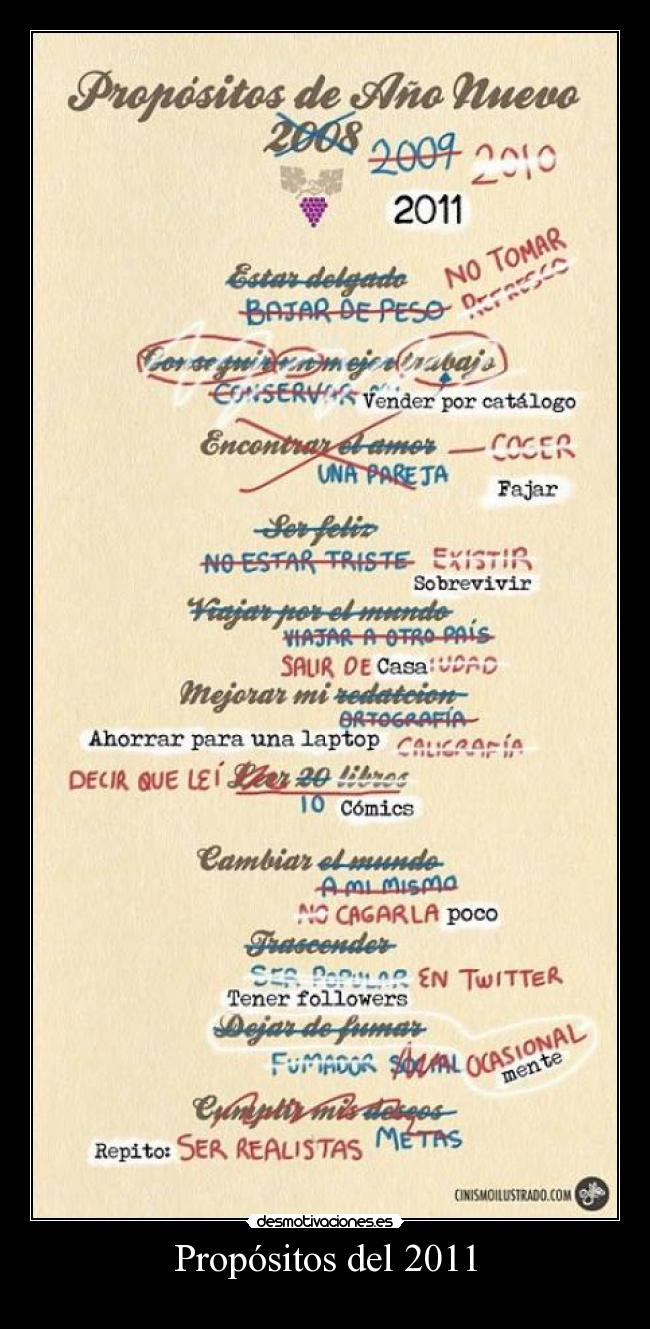 Propósitos de Año Nuevo
2008 2009 2010
2011
Estar delgado NO TOMAR
BAJAR DE PESO REFRESCO
Conseguir un mejor trabajo
CONSERVAR Vender por catálogo
Encontrar el amor — COGER
UNA PAREJA
Fajar
Ser feliz
NO ESTAR TRISTE EXISTIR
Sobrevivir
Viajar por el mundo
VIAJAR A OTRO PAÍS
SALIR DE Casa
Mejorar mi redatcion
ORTOGRAFÍA
Ahorrar para una laptop CALIGRAFÍA
DECIR QUE LEÍ Leer 20 libros
10 Cómics
Cambiar el mundo
A MI MISMO
NO CAGARLA poco
Trascender
SER POPULAR EN TWITTER
Tener followers
Dejar de fumar
FUMADOR SOCIAL OCASIONAL
mente
Cumplir mis deseos
METAS
Repito: SER REALISTAS
CINISMOILUSTRADO.COM
desmotivaciones.es
Propósitos del 2011